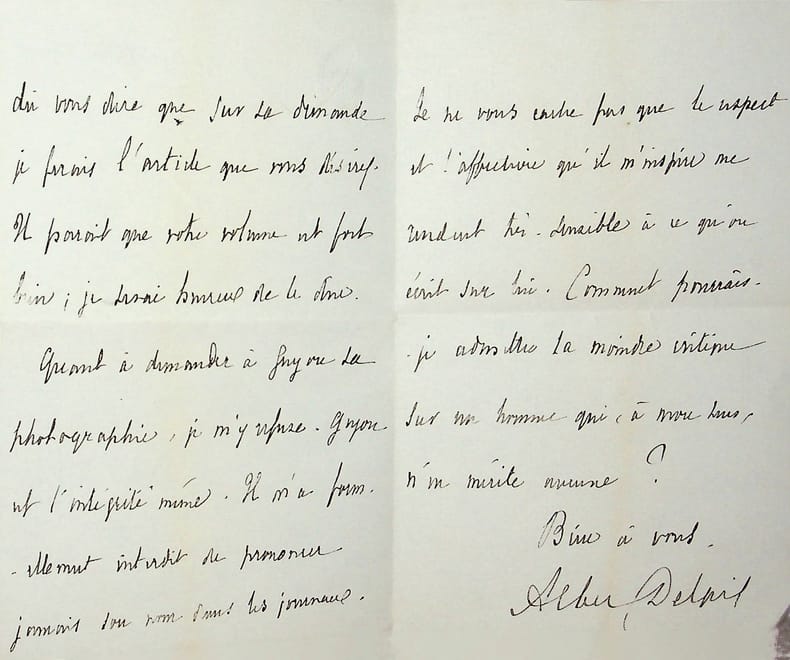 dû vous dire que sur sa demande
je ferais l'article que vous désirez.
Il paraît que votre volume est fort
bien ; je serai heureux de le dire.
Quant à demander à Guyon sa
photographie, je m'y refuse. Guyon
est l'intégrité même. Il m'a form-
-ellement interdit de prononcer
jamais son nom dans les journaux.
Je ne vous cache pas que le respect
et l'affection qu'il m'inspire me
rendent très-sensible à ce qu'on
écrit sur lui. Comment pourrais-
-je admettre la moindre critique
sur un homme qui, à mon sens,
n'en mérite aucune ?
Bien à vous.
Albert Delpit